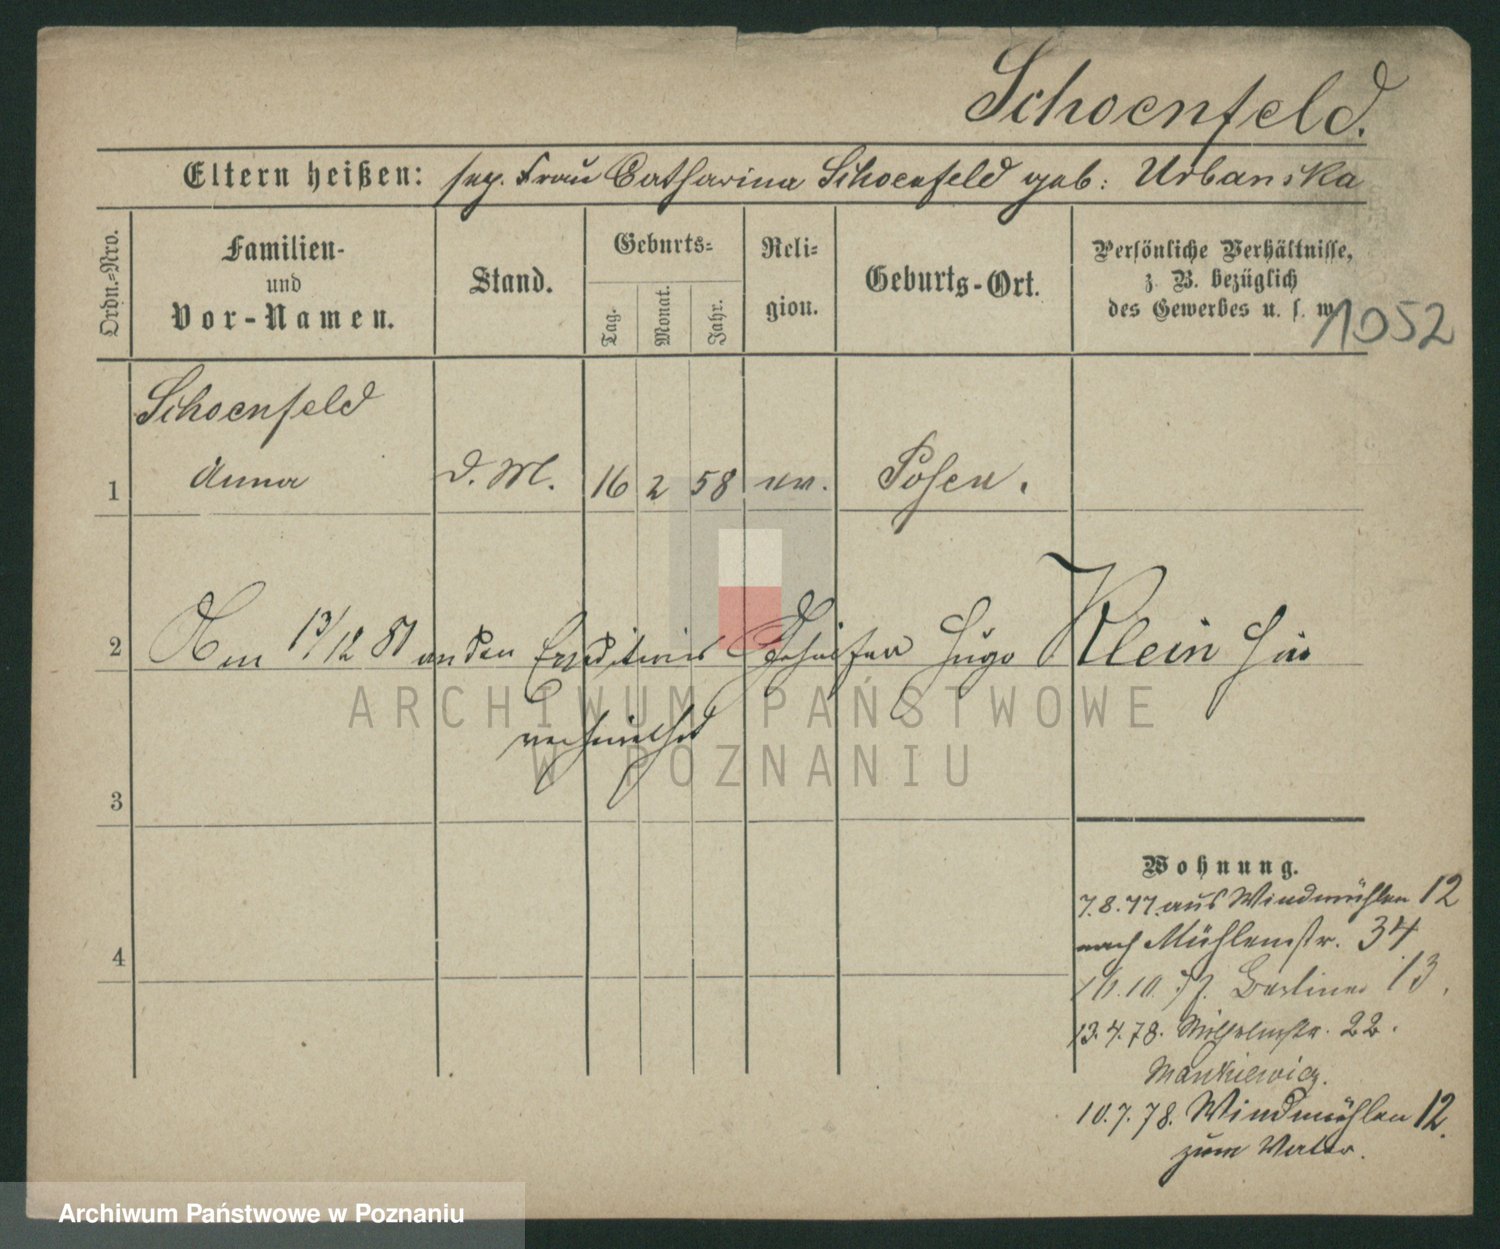 Schoenfeld.
Eltern heißen: sep. Frau Catharina Schoenfeld geb: Urbanska
Ordn.=Nro.
Familien-
und
Vor-Namen.
Stand.
Geburts=
Tag.
Monat.
Jahr.
Reli=
gion.
Geburts-Ort.
Persönliche Verhältnisse,
z. B. bezüglich
des Gewerbes u. s. w.
1052
Schoenfeld
1 Anna d. M. 16 2 58 ev. Posen.
2 Am 13/12 81 an den Expeditions Gehülfen Hugo Klein hier
verheirathet
3
4
Wohnung.
7.8.77. aus Windmühlen 12
nach Mühlenstr. 34
10. 77. Berliner 13.
13.4.78. Wilhelmstr. 22.
Mankiewicz.
10.7.78. Windmühlen 12.
zum Vater.
ARCHIWUM PAŃSTWOWE
W POZNANIU
Archiwum Państwowe w Poznaniu